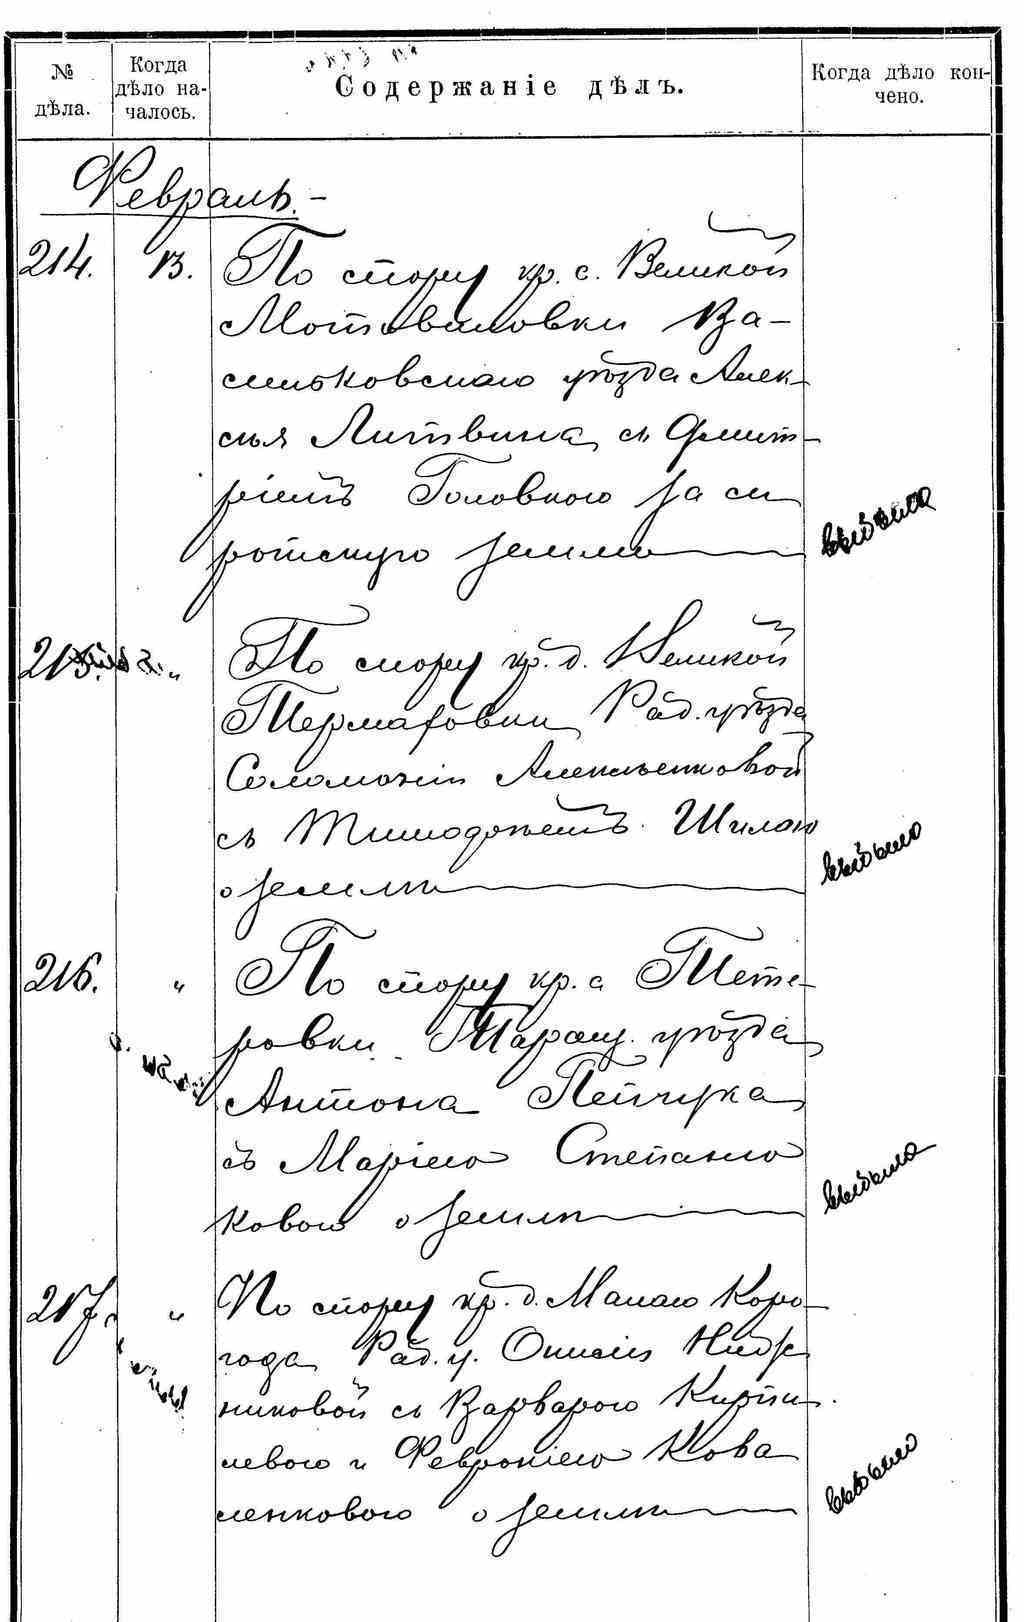 № дѣла.
Когда дѣло началось.
Содержаніе дѣлъ.
Когда дѣло кончено.
Февраль.-
214. 13. По спору кр. с. Великой
Мотовиловки Ва-
сильковскаго уѣзда Алек-
сѣя Литвина съ Дмит-
ріемъ Головкою за си
ротскую землю
выбыло
215. " По спору кр. д. Великой
Термаховки Рад. уѣзда
Соломоніи Алексѣенковой
съ Тимофеемъ Шилою
о землѣ
выбыло
216. " По спору кр. с Тете-
ровки Таращ. уѣзда
Антона Пейчука
съ Маріею Степаню
ковою о землѣ
выбыло
217. " По спору кр. д. Малаго Коро-
года Рад. у. Онисіи
никовой съ Варварою Кири
левою и Февроніею Кова
ленковою о землѣ
выбыло